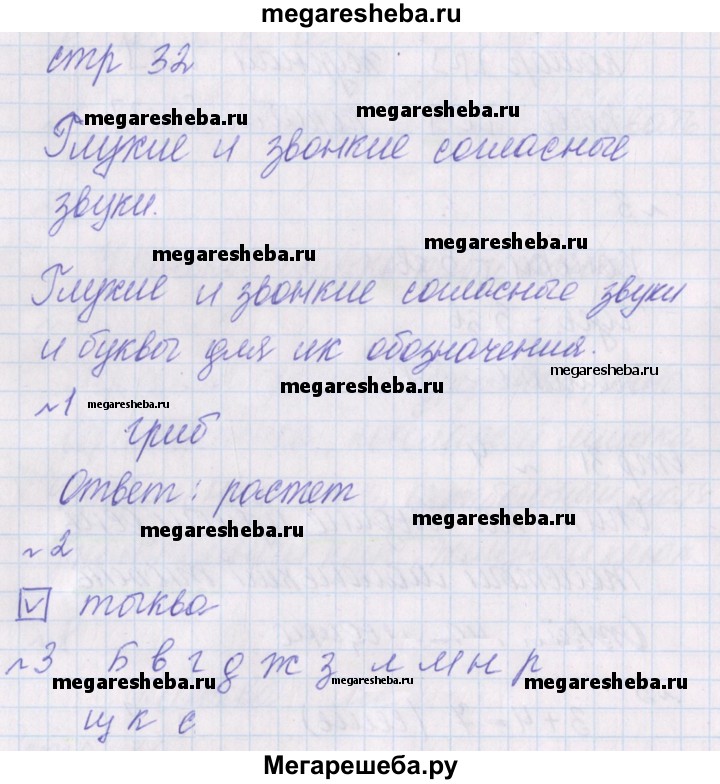 megaresheba.ru
стр 32
megaresheba.ru
megaresheba.ru
Глухие и звонкие согласные
звуки.
megaresheba.ru
megaresheba.ru
Глухие и звонкие согласные звуки
и буквы для их обозначения.
megaresheba.ru
megaresheba.ru
№1
megaresheba.ru
гриб
Ответ: растет
megaresheba.ru
megaresheba.ru
№2
тыква
№3 Б в г д ж з л м н р
megaresheba.ru
megaresheba.ru
megaresheba.ru
щ к с
Мегарешеба.ру